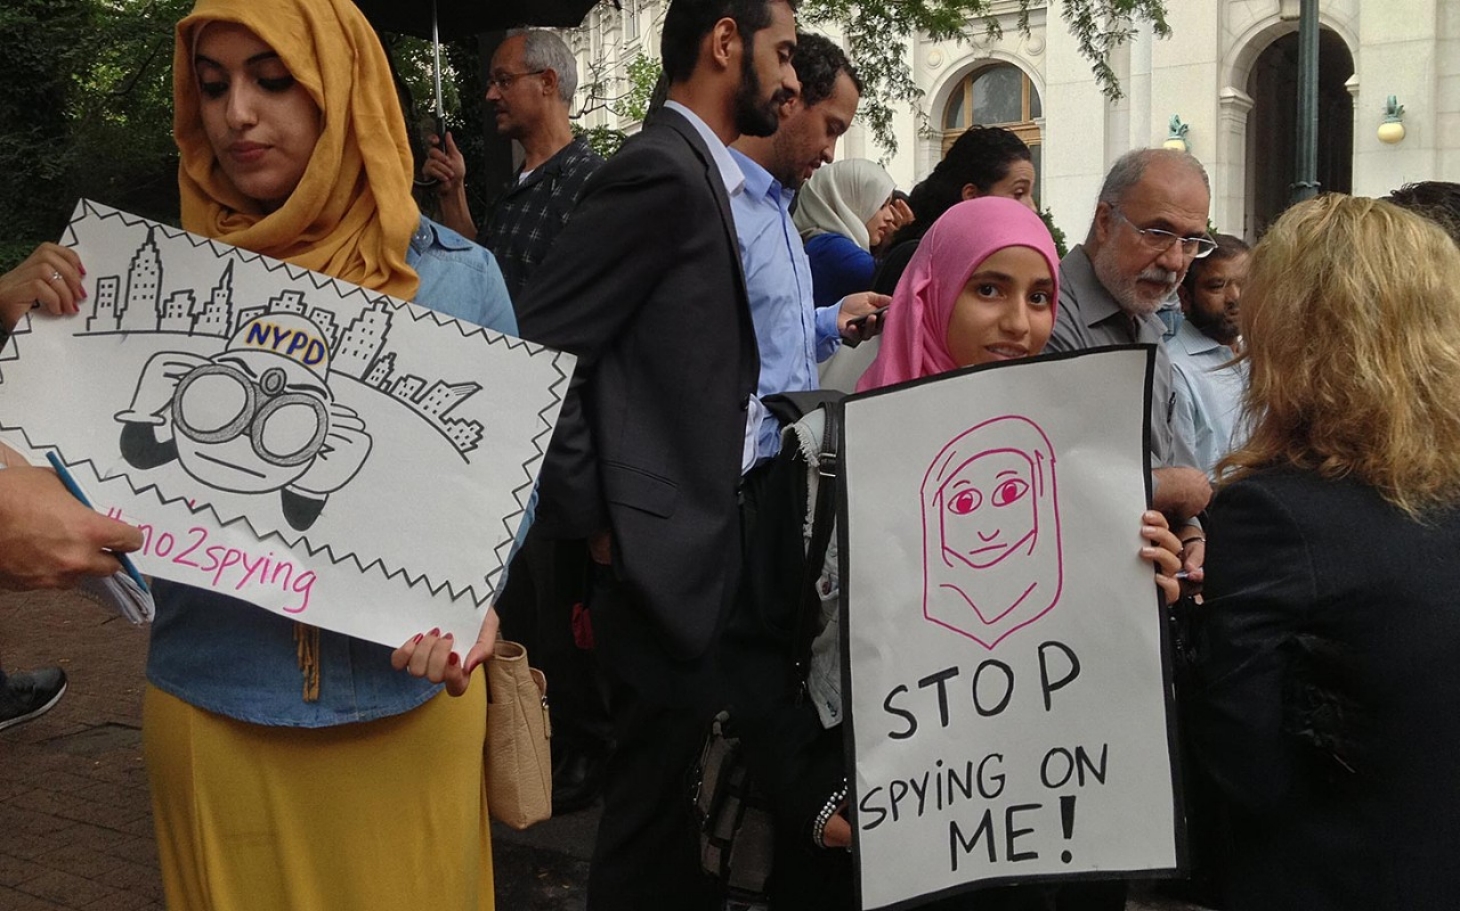 NYPD
#no2spying
STOP
SPYiNG ON
ME!